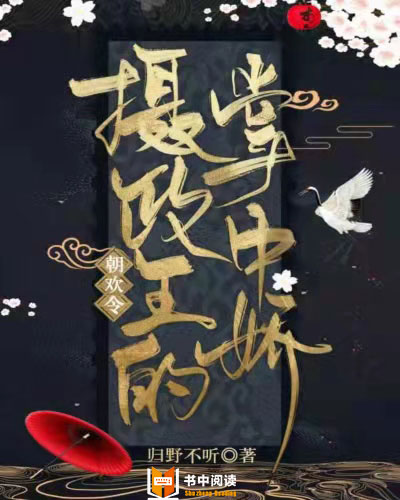 摄政王的
掌中娇
朝欢令
归野不听◎著
书中阅读
Shuzhong-Reading